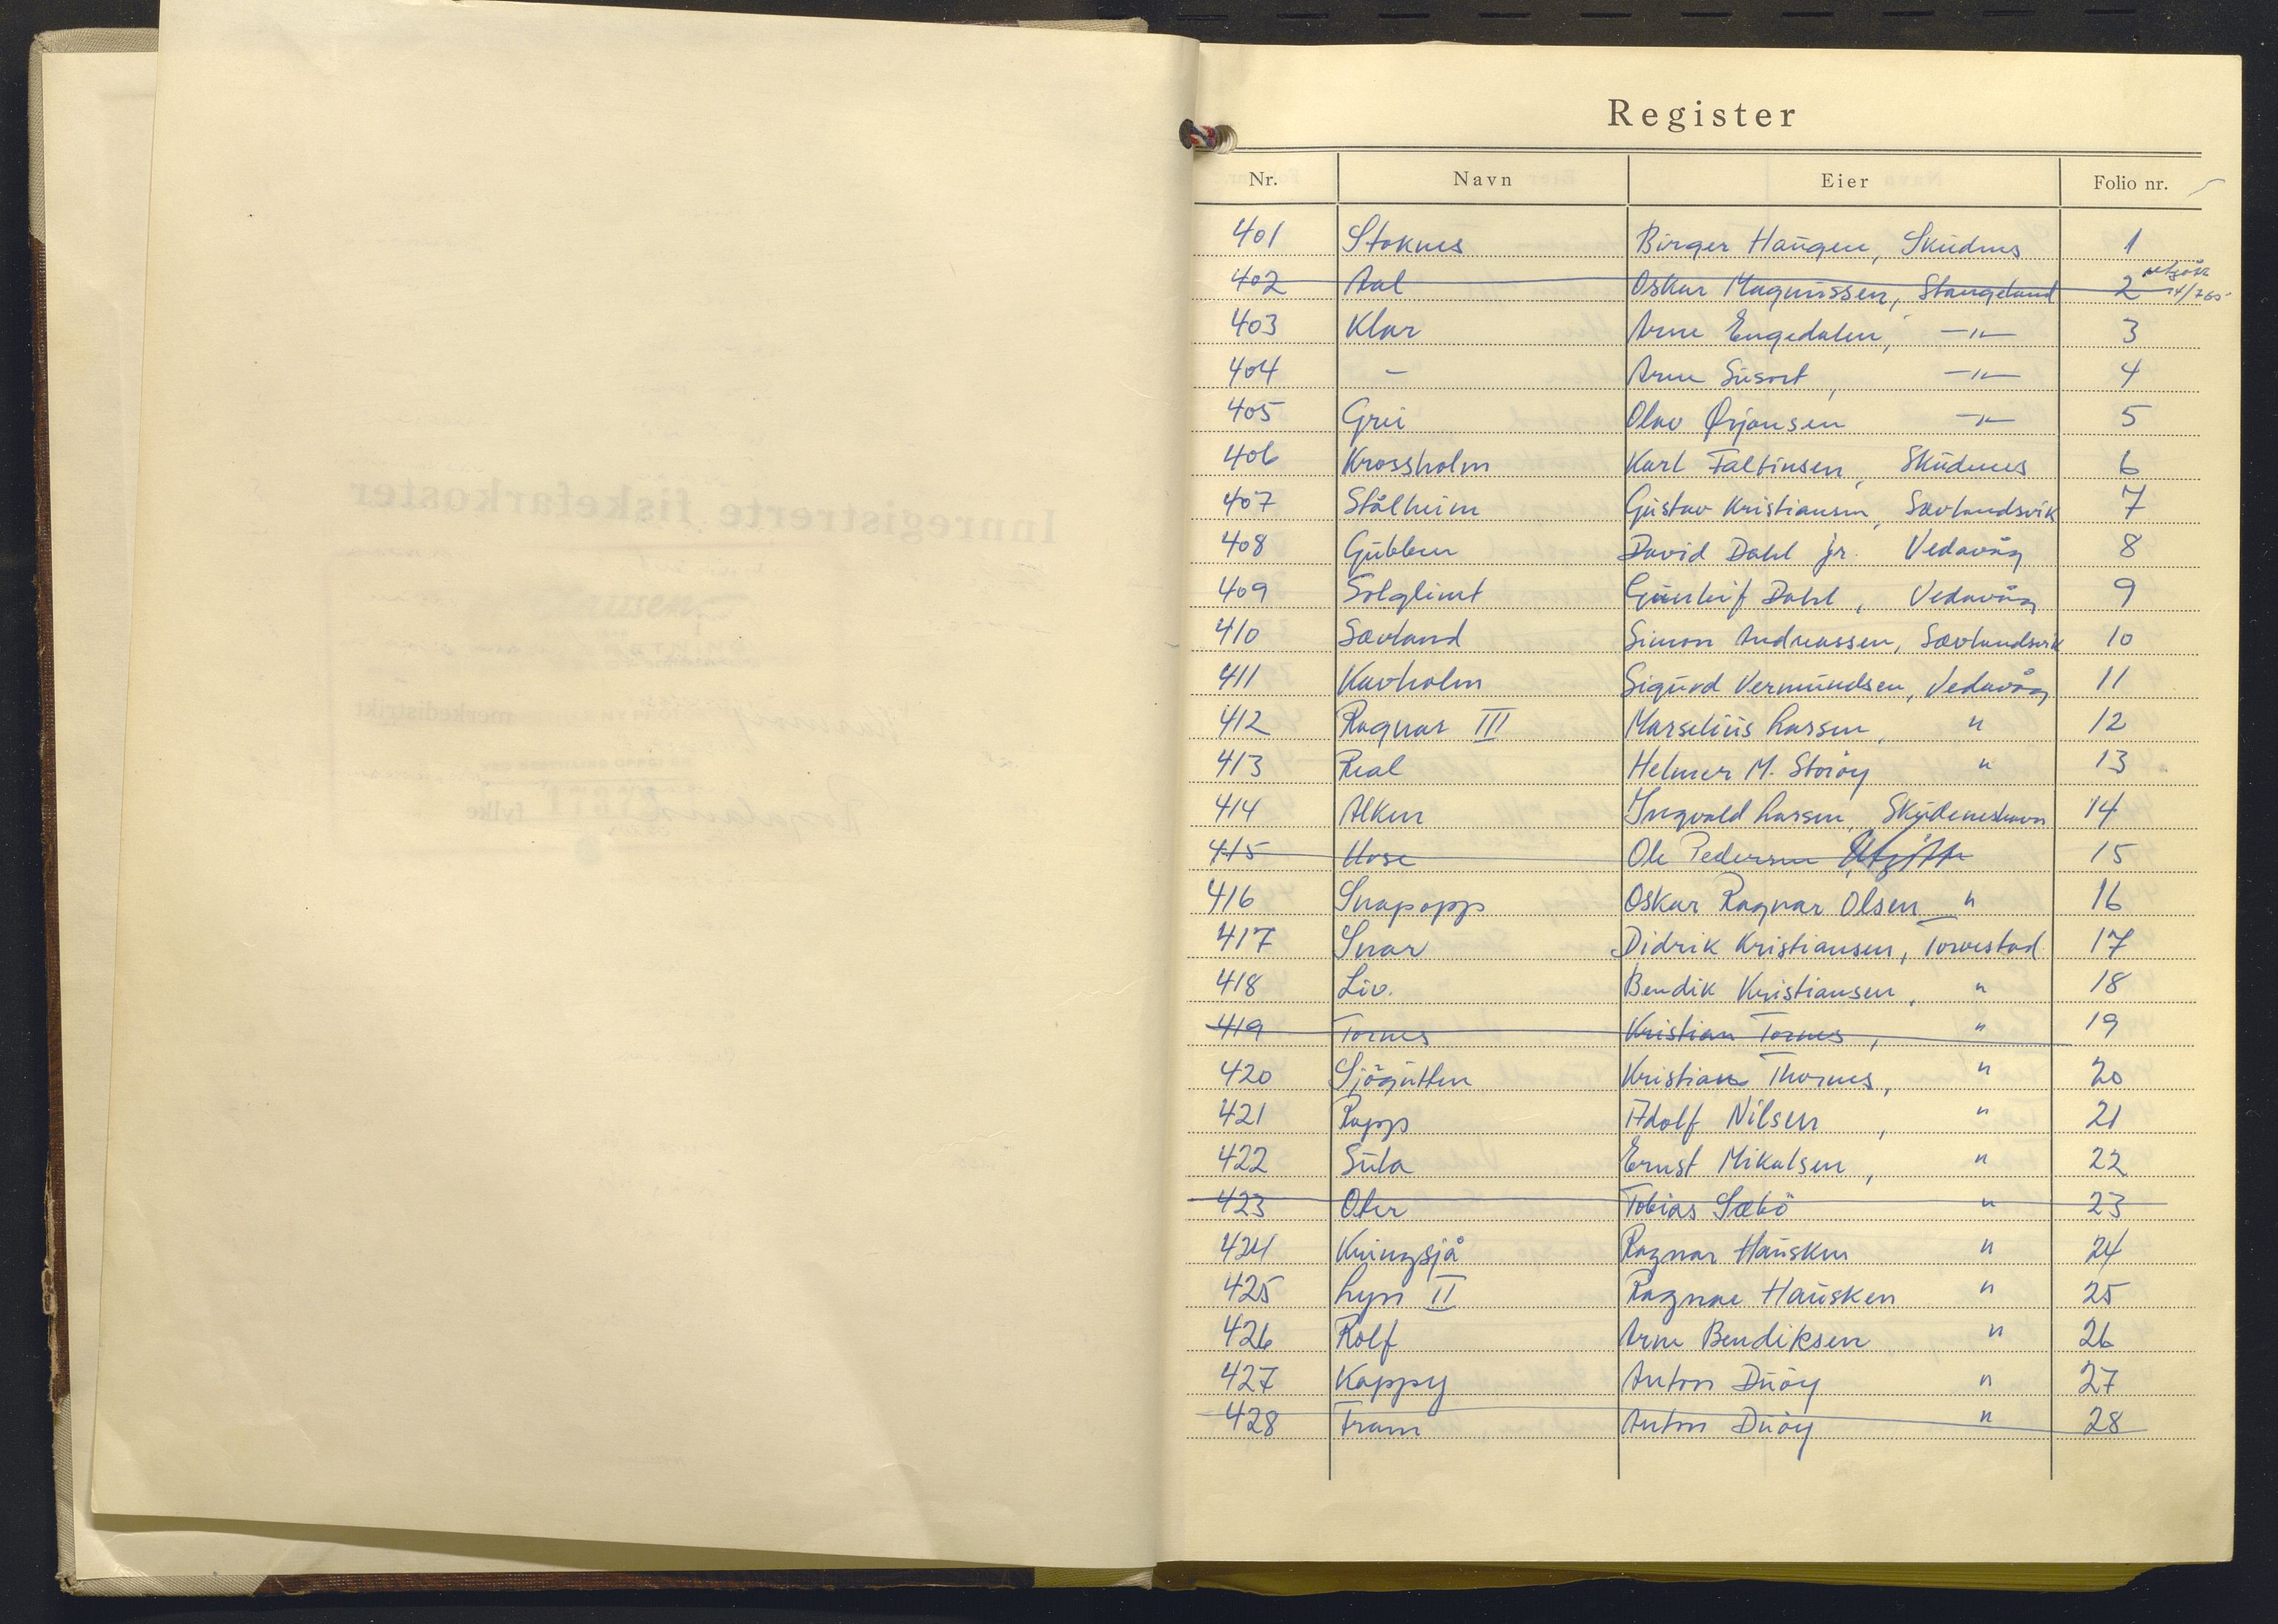 Register
Nr. Navn Eier Folio nr.
401 Stoknes Birger Haugen, Skudnes 1
402 Aal Oskar Magnussen, Stangeland 2 utgått 14/7 65
403 Klar Arne Engedalen, —"— 3
404 – Arne Susort, —"— 4
405 Grei Olav Ørjansen —"— 5
406 Krossholm Karl Faltinsen, Skudnes 6
407 Stålheim Gustav Kristiansen, Sævlandsvik 7
408 Gubben David Dahl jr. Vedavåg 8
409 Solglimt Gunleif Dahl, Vedavåg 9
410 Sævland Simon Andreassen, Sævlandsvik 10
411 Kavholm Sigurd Vermundsen, Vedavåg 11
412 Ragnar III Marselius Larsen, " 12
413 Real Helmer M. Storöy " 13
414 Alken Ingvald Larsen, Skudeneshavn 14
415 Ole Pedersen Utgått 15
416 Snapopp Oskar Ragnar Olsen " 16
417 Snar Didrik Kristiansen, Torvestad 17
418 Liv. Bendik Kristiansen, " 18
419 Tornes Kristian Tornes, " 19
420 Sjögutten Kristian Thornes, " 20
421 Rapp Adolf Nilsen, " 21
422 Sula Ernst Mikalsen, " 22
423 Oter Tobias Sæbö " 23
424 Kringsjå Ragnar Hausken " 24
425 Lyn II Ragnar Hausken " 25
426 Rolf Arne Bendiksen " 26
427 Kappy Anton Duöy " 27
428 Fram Anton Duöy " 28
Innregistrerte fiskefarkoster
merkedistrikt
Rogaland fylke